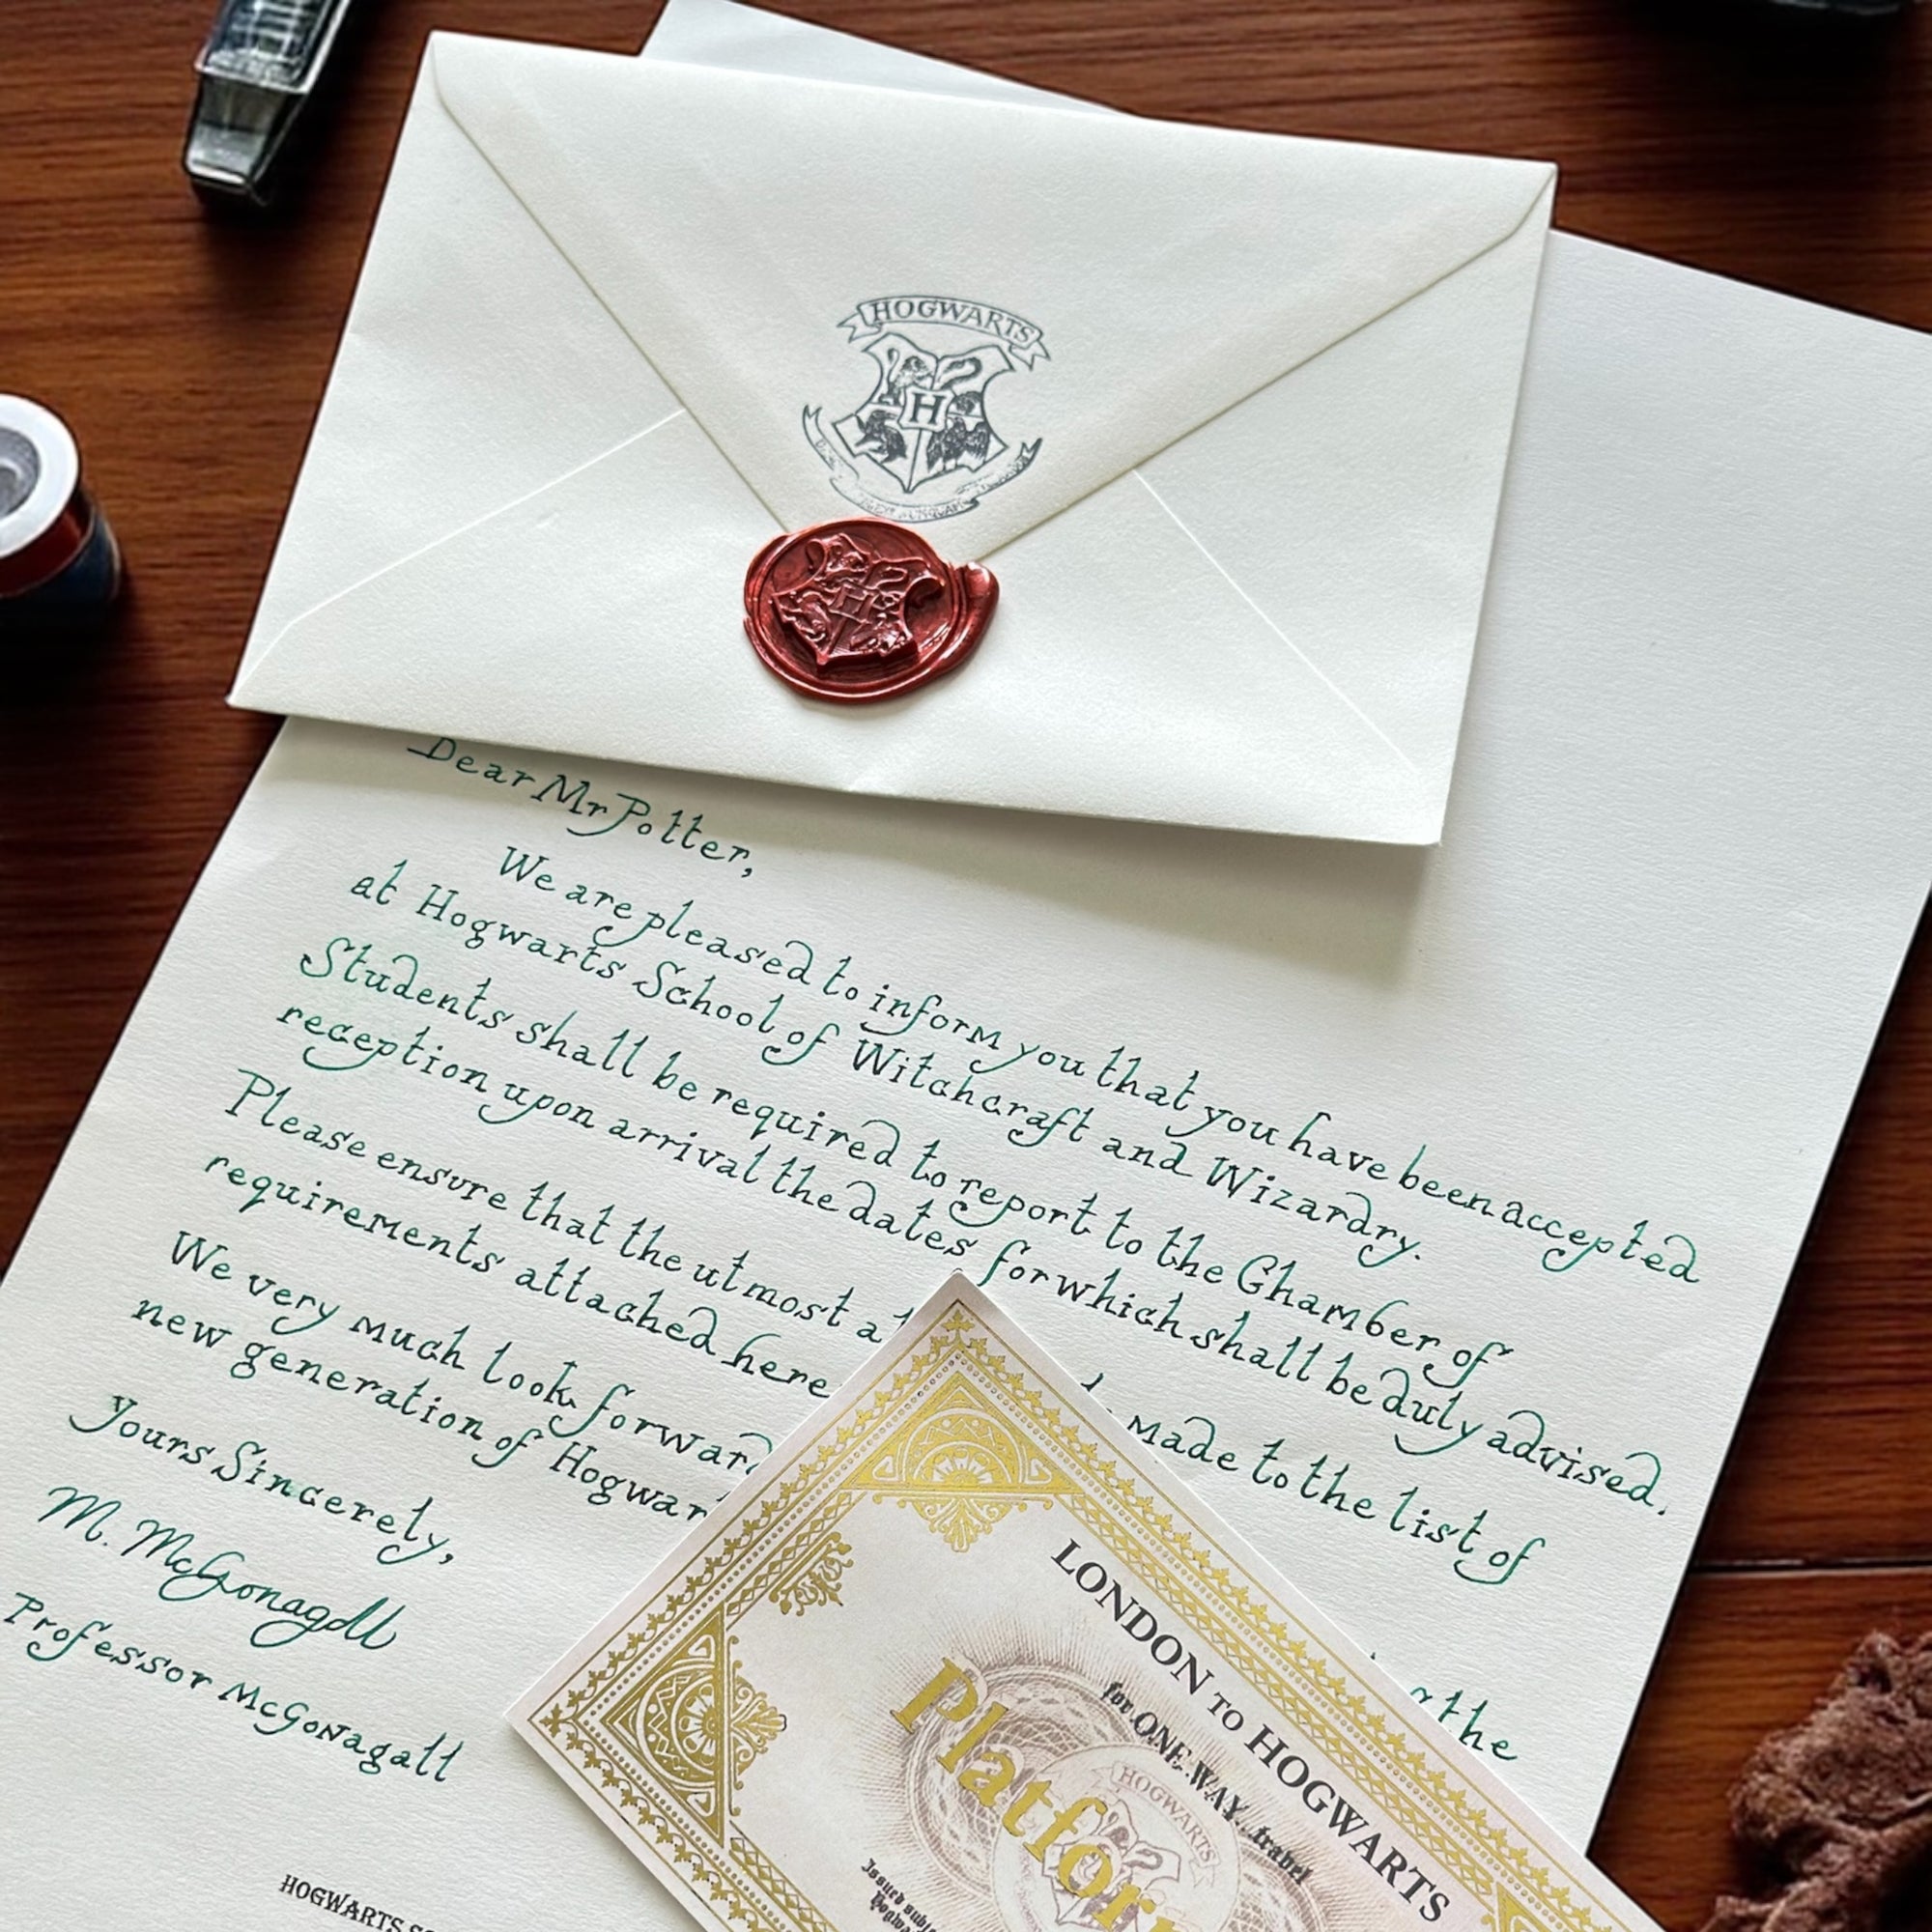 HOGWARTS
H
H
Dear Mr Potter,
We are pleased to inform you that you have been accepted
at Hogwarts School of Witchcraft and Wizardry.
Students shall be required to report to the Chamber of
reception upon arrival the dates for which shall be duly advised.
Please ensure that the utmost made to the list of
requirements attached here
We very much look forward the
new generation of Hogwar
Yours Sincerely,
M. McGonagall
Professor McGonagall
HOGWARTS
LONDON TO HOGWARTS
for ONE WAY travel
Platform
HOGWARTS
Issued